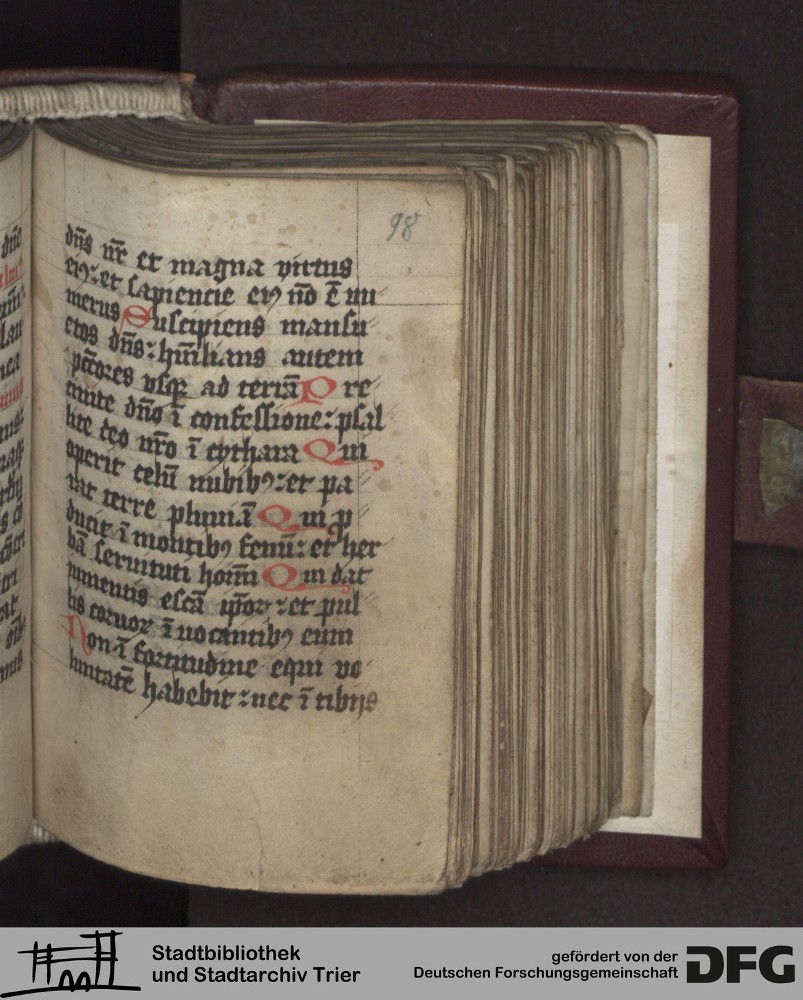 98
dn̄s nr̄ et magna virtus
eiꝰ: et sapiencie eiꝰ nō ē nu
merus Suscipiens mansu
etos dn̄s: hūilians autem
pctōres vsqꝫ ad terrā P re
cinite dn̄o ī confessione: psal
lite deo nr̄o ī cythara Qui
operit celū nubibꝰ: et pa
rat terre pluuiā Qui ꝓ
ducit ī montibꝰ fenū: et her
bā seruituti hoīm Qui dat
iumentis escā ip̄oꝝ: et pul
lis coruoꝝ īuocantibꝰ eum
Non ī fortitudine equi vo
luntatē habebit: nec ī tibijs
dn̄e
Stadtbibliothek
und Stadtarchiv Trier
gefördert von der
Deutschen Forschungsgemeinschaft
DFG